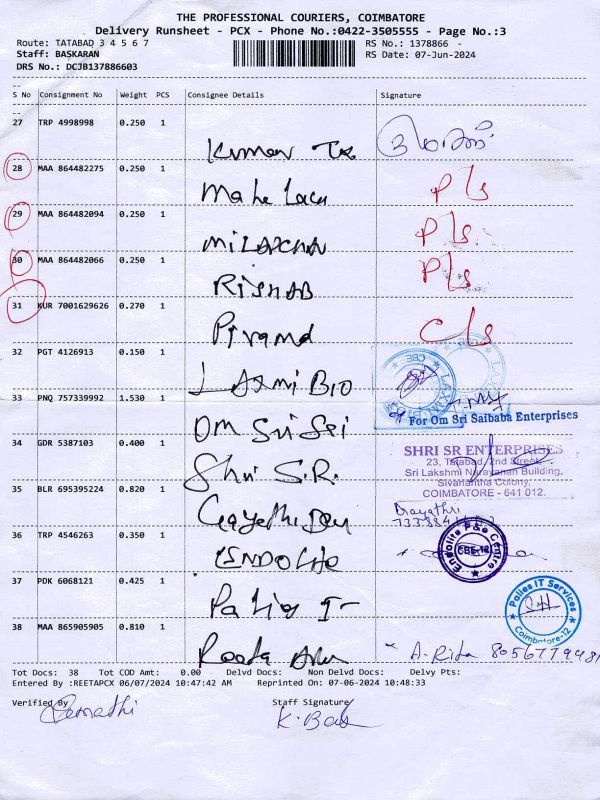 THE PROFESSIONAL COURIERS, COIMBATORE
Delivery Runsheet - PCX - Phone No.:0422-3505555 - Page No.:3
Route: TATABAD 3 4 5 6 7
RS No.: 1378866 -
Staff: BASKARAN
RS Date: 07-Jun-2024
DRS No.: DCJB137886603
S No Consignment No Weight PCS Consignee Details Signature
27 TRP 4998998 0.250 1
Kumar
28 MAA 864482275 0.250 1
P/s
29 MAA 864482094 0.250 1
P/s
MILAXCHN
30 MAA 864482066 0.250 1
P/s
RISHAB
31 KUR 7001629626 0.270 1
Piramd
C/s
32 PGT 4126913 0.150 1
LAXMI BIO
33 PNQ 757339992 1.530 1
For Om Sri Saibaba Enterprises
OM Sri Sai
34 GDR 5387103 0.400 1
SHRI SR ENTERPRISES
23, Tatabad, 2nd Street,
Sri Lakshmi Narayanan Building,
Sivanantha Colony,
COIMBATORE - 641 012.
Shri S.R.
35 BLR 695395224 0.820 1
Gayathri
36 TRP 4546263 0.350 1
Endolite P&O Centre
CBE-12
ENDOLITE
37 PDK 6068121 0.425 1
Palies IT Services
Coimbatore-12
Palies I
38 MAA 865905905 0.810 1
A. Rita 8056779481
Tot Docs: 38 Tot COD Amt: 0.00 Delvd Docs: Non Delvd Docs: Delvy Pts:
Entered By :REETAPCX 06/07/2024 10:47:42 AM Reprinted On: 07-06-2024 10:48:33
Verified By
Staff Signature
K. Bas